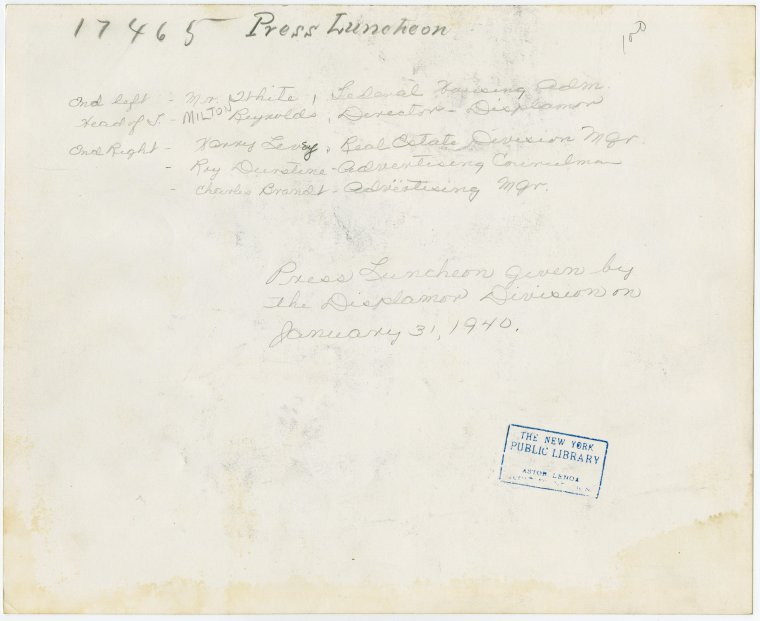 17465 Press Luncheon
2nd left - Mr. White, Federal Housing Adm.
Head of T. - MILTON Reynolds, Director - Displamor
2nd Right - Harry Levey, Real Estate Division Mgr.
- Roy Durstine - Advertising Councilman
- Charles Brandt - Advertising Mgr.
Press Luncheon given by
the Displamor Division on
January 31, 1940.
THE NEW YORK
PUBLIC LIBRARY
ASTOR LENOX